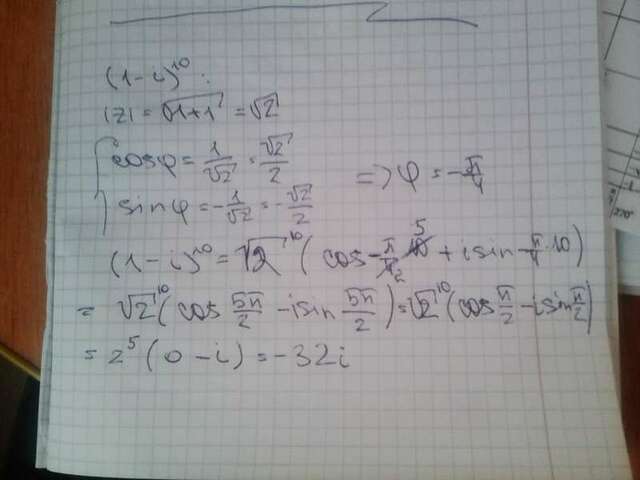 (1-i)^10 :
|z| = √(1+1) = √2
cosφ = 1/√2 = √2/2
sinφ = -1/√2 = -√2/2 => φ = -π/4
(1-i)^10 = √2^10 (cos -π/4 10 5 2 + i sin -π/4 · 10)
= √2^10 (cos 5π/2 - i sin 5π/2) = √2^10 (cos π/2 - i sin π/2)
= 2^5 (0 - i) = -32i